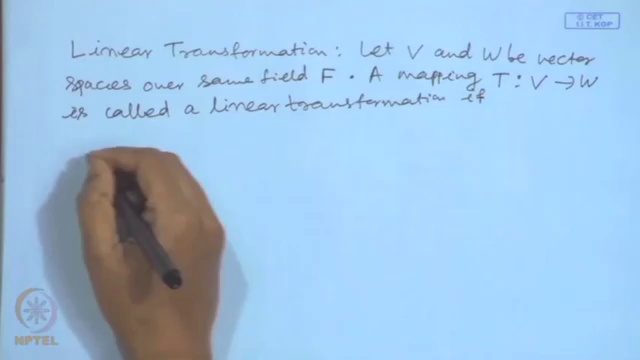 © CET
I.I.T. KGP
Linear Transformation: Let V and W be vector
spaces over same field F. A mapping T: V → W
is called a linear transformation if
NPTEL